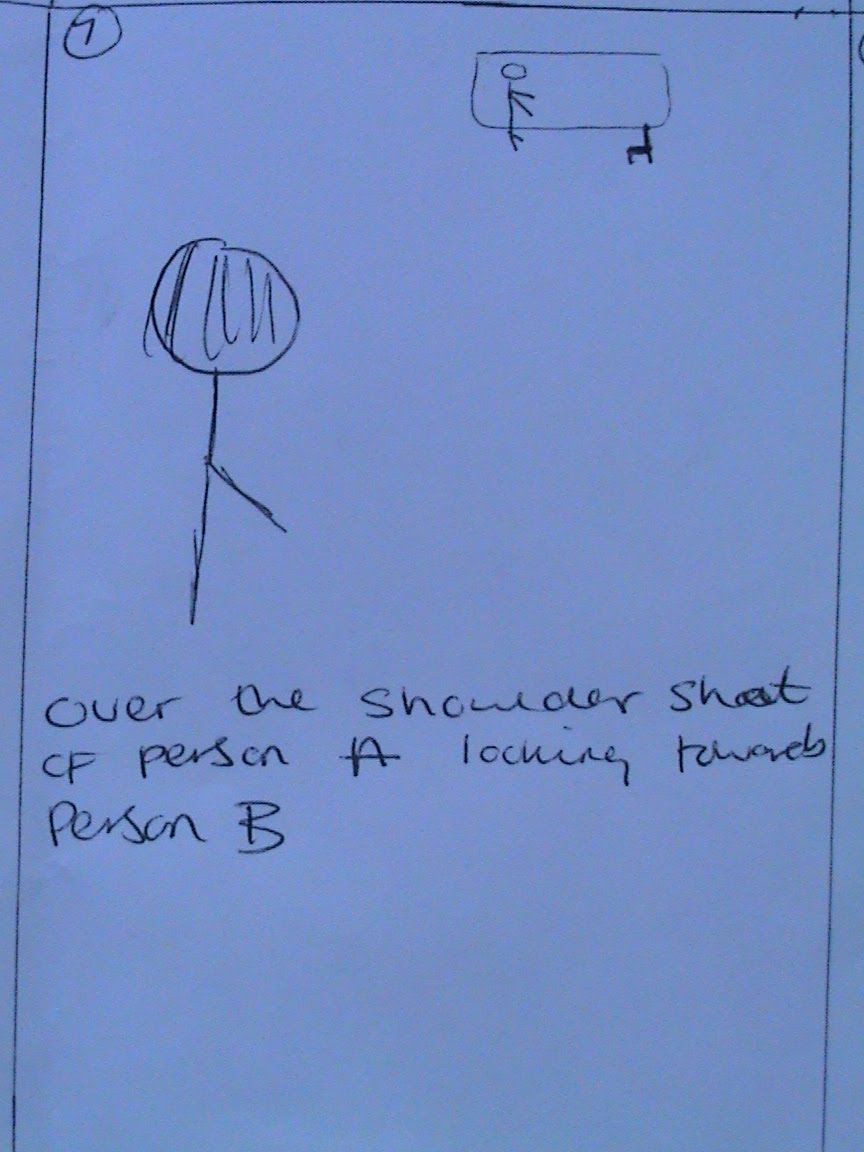 over the shoulder shot
OF person A looking towards
Person B